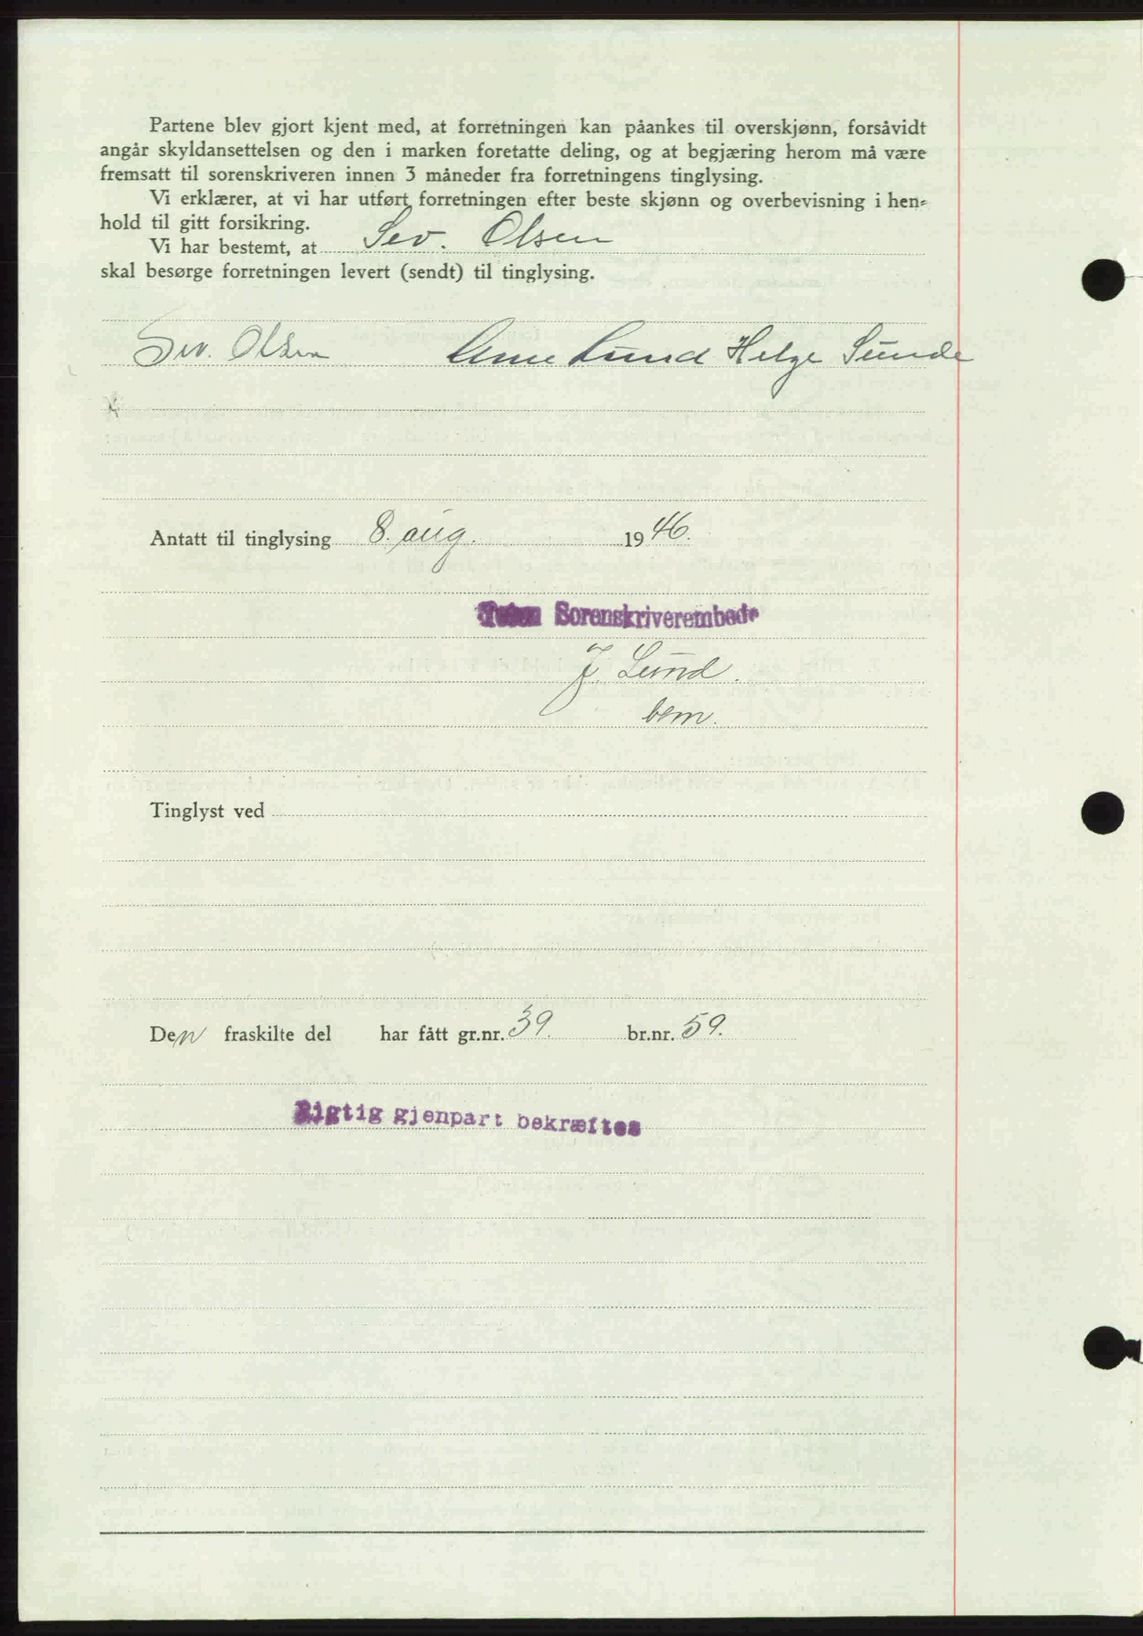 Partene blev gjort kjent med, at forretningen kan påankes til overskjønn, forsåvidt
angår skyldansettelsen og den i marken foretatte deling, og at begjæring herom må være
fremsatt til sorenskriveren innen 3 måneder fra forretningens tinglysing.
Vi erklærer, at vi har utført forretningen efter beste skjønn og overbevisning i hen-
hold til gitt forsikring.
Vi har bestemt, at Sev. Olsen
skal besørge forretningen levert (sendt) til tinglysing.
Sev. Olsen Arne Lund Helge Sunde
Antatt til tinglysing 8. aug. 1946.
Sorenskriverembede
J. Lund.
bem.
Tinglyst ved
Den fraskilte del har fått gr.nr. 39. br.nr. 59.
Rigtig gjenpart bekræftes